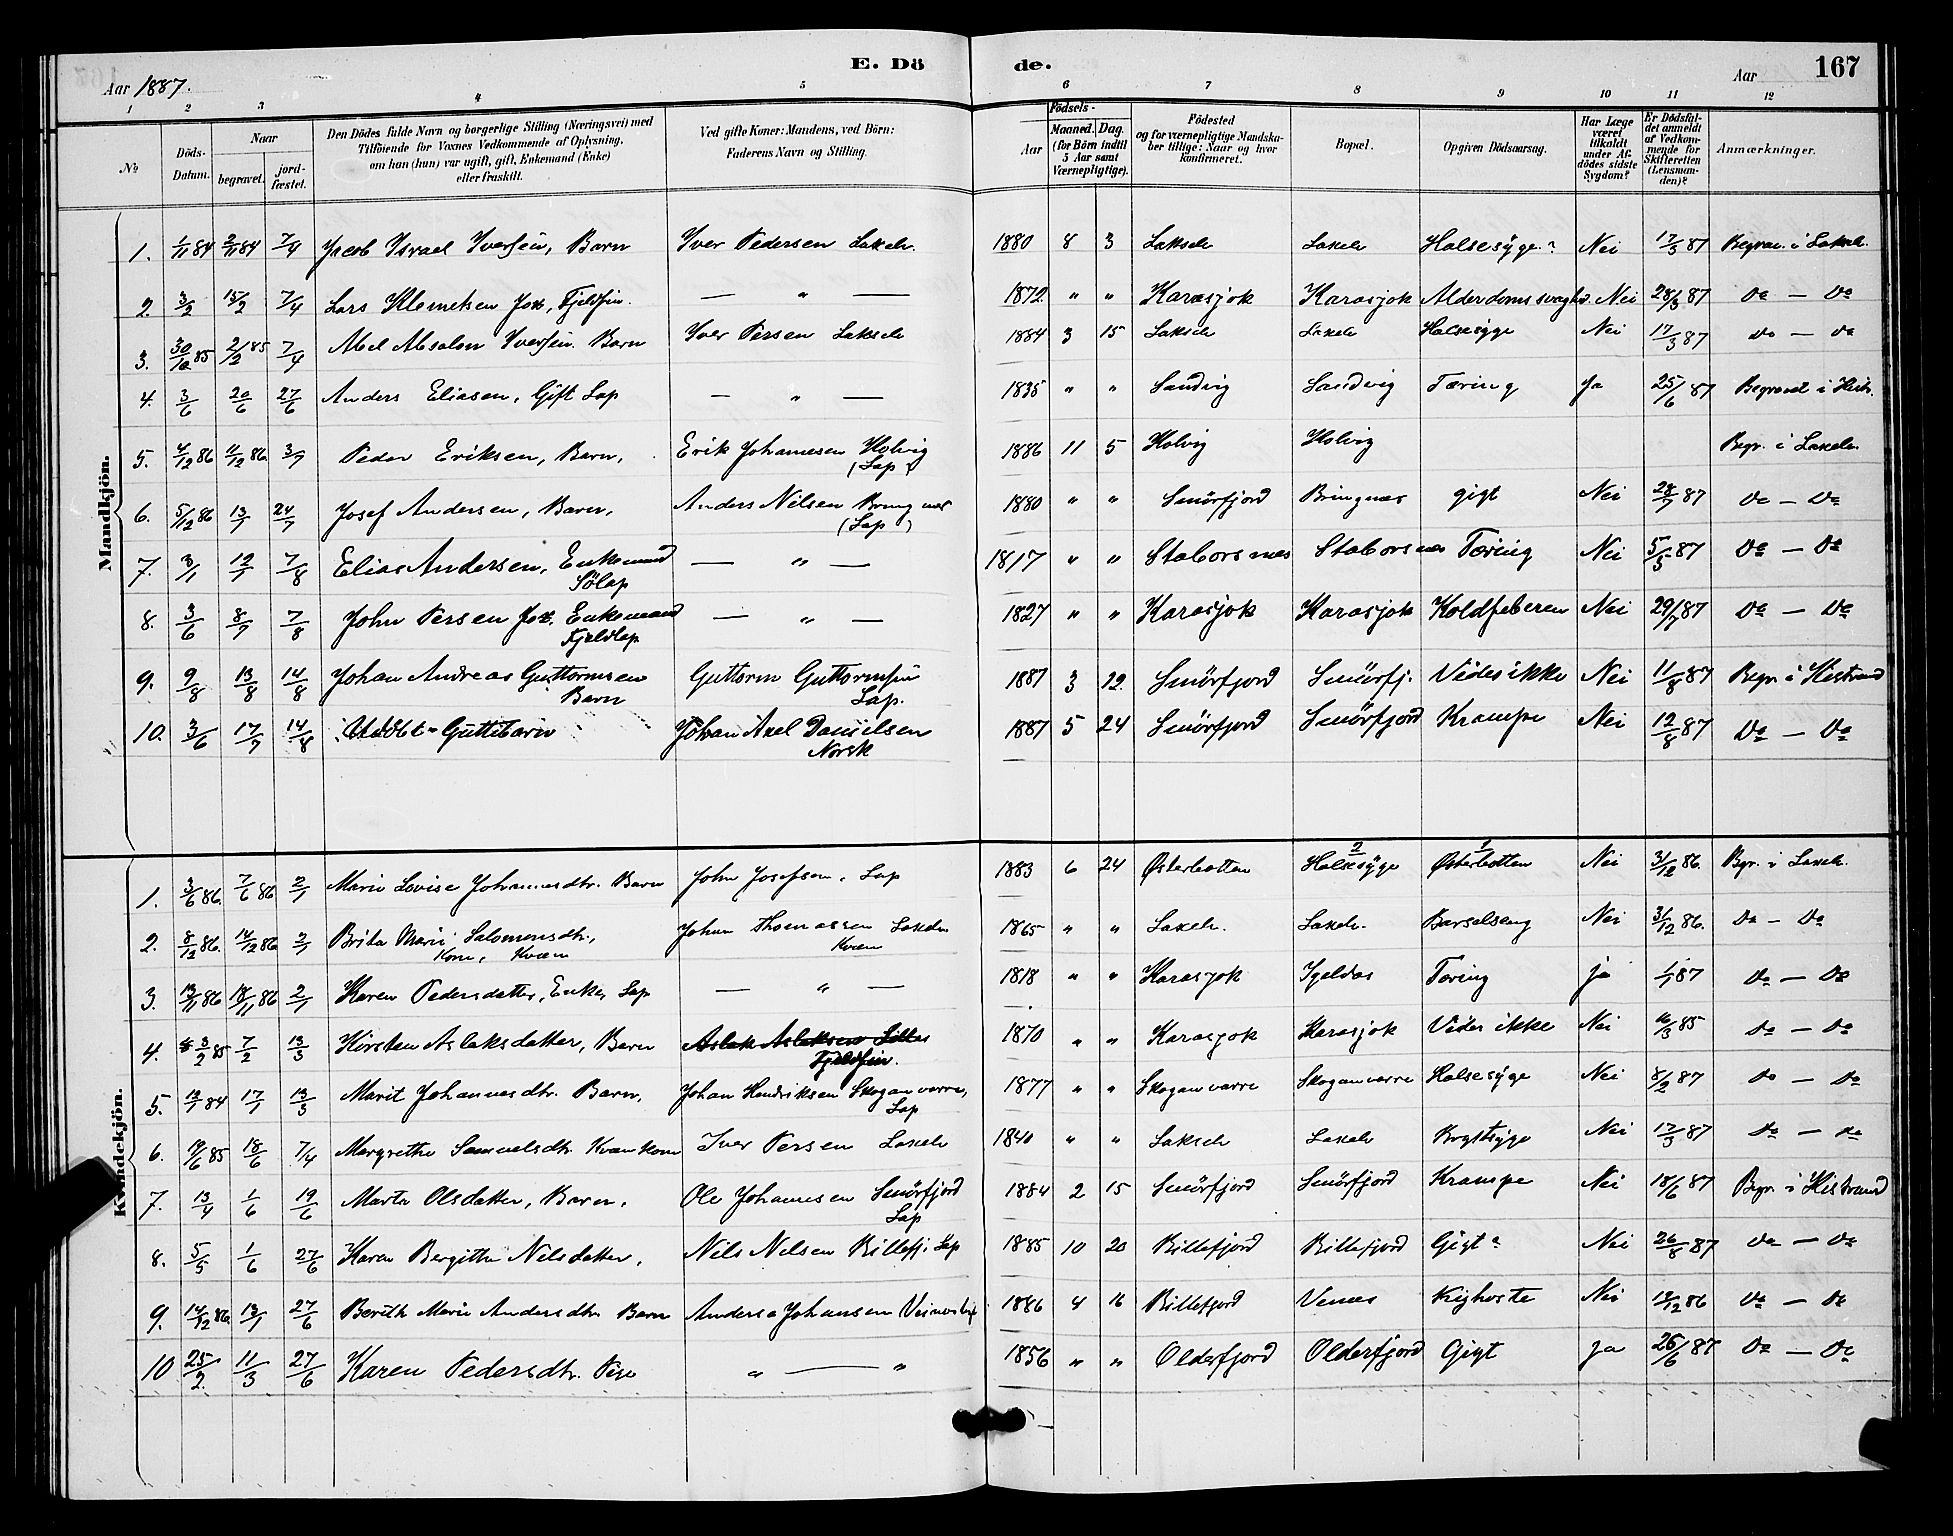 E. Dö de. 167
Aar 1887. Aar
1 2 3 4 5 6 7 8 9 10 11 12
№ Döds-Datum. Naar begravet. jord-fæstet. Den Dödes fulde Navn og borgerlige Stilling (Næringsvei) med Tilföiende for Voxnes Vedkommende af Oplysning, om han (hun) var ugift, gift, Enkemand (Enke) eller fraskilt. Ved gifte Koner: Mandens, ved Börn: Faderens Navn og Stilling. Födsels- Aar Maaned. Dag. (for Börn indtil 5 Aar samt Værnepligtige). Födested og for værnepligtige Mandskaber tillige: Naar og hvor konfirmeret. Bopæl. Opgiven Dödsaarsag. Har Læge været tilkaldt under Afdödes sidste Sygdom? Er Dödsfaldet anmeldt af Vedkommende for Skifteretten (Lensmanden)? Anmærkninger.
Mandkjön.
1. 1/11 84 2/11 84 7/4 Jacob Israel Iversen, Barn Iver Pedersen Lakselv. 1880 8 3 Lakselv Lakselv Halsesyge? Nei 17/3 87 Begrav. i Lakselv.
2. 3/2 15/2 7/4 Lars Klemetsen Jox, Fjeldfin. — " — 1872 " " Karasjok Karasjok Alderdomssvaghd. Nei 28/3 87 Do — Do
3. 30/12 85 2/2 85 7/4 Abel Absalon Iversen. Barn Iver Persen Lakselv 1884 3 15 Lakselv Lakselv Halsesyge Nei 17/3 87 Do — Do
4. 3/6 20/6 27/6 Anders Eliasen, Gift Lap — " — 1835 " " Sandvig Sandvig Tæring Ja 25/6 87 Begravet i Kistr.
5. 4/12 86 11/12 86 3/7 Peder Eriksen, Barn, Erik Johannesen Kolvig (Lap) 1886 11 5 Kolvig Kolvig Begr. i Lakselv
6. 5/12 86 13/7 24/7 Josef Andersen, Barn, Anders Nilsen Bringnes (Lap) 1880 " " Smörfjord Bringnes gigt Nei 28/7 87 Do — Do
7. 3/1 12/7 7/8 Elias Andersen, Enkemand Sölap — " — 1817 " " Staborsnes Staborsnes Tæring Nei 5/5 87 Do — Do
8. 3/6 8/7 7/8 John Persen Jox. Enkemand Fjeldlap — " — 1827 " " Karasjok Karasjok Koldfeberen Nei 29/7 87 Do — Do
9. 9/8 13/8 14/8 Johan Andreas Guttormsen Barn Guttorm Guttormsen Lap. 1887 3 12 Smörfjord Smörfj. Vides ikke Nei 11/8 87 Begr. i Kistrand
10. 3/6 17/7 14/8 Udöbt Guttebarn Johan Axel Danielsen Norsk 1887 5 24 Smörfjord Smörfjord Krampe Nei 12/8 87 Do — Do
Kvindekjön.
1. 3/6 86. 7/6 86 2/1 Marie Lovise Johannesdtr. Barn John Josefsen, Lap 1883 6 24 Østerbotten 2 Halsesyge 1 Østerbotten Nei 31/12 86. Begr. i Lakselv.
2. 8/12 86. 14/12 86 2/1 Brita Marie Salomonsdtr., Kone, Kvæn Johan Thomassen Lakselv Kvæn 1865 " " Lakselv. Lakselv. Barselseng Nei 31/12 86. Do — Do
3. 13/11 86 18/11 86 2/1 Karen Pedersdatter, Enke, Lap — " — 1818 " " Karasjok Igeldas Tæring ja 1/1 87 Do — Do
4. 3/2 85 7/2 13/3 Kirsten Aslaksdatter, Barn Aslak Aslaksen Fjeldfin. 1870 " " Karasjok Karasjok Vides ikke Nei 85 Do — Do
5. 13/1 84 17/1 13/3 Marit Johannesdtr. Barn, Johan Hendriksen Skoganvarre, Lap 1877 " " Skoganvarre Skoganvarre Halsesyge Nei 8/2 87 Do — Do
6. 85 18/6 7/4 Margrethe Samuelsdtr. Kvæn kone Iver Persen Lakselv 1840 " " Lakselv Lakselv Brystsyge Nei 17/3 87 Do — Do
7. 13/4 1/6 19/6 Marta Olsdatter, Barn. Ole Johannesen Smörfjord Lap 1884 2 15 Smörfjord Smörfjord Krampe Nei 18/6 87 Begr. i Kistrand
8. 5/5 1/6 27/6 Karen Bergitte Nilsdatter, Nils Nilsen Billefj. Lap 1885 10 20 Billefjord Billefjord Gigt? Nei 26/8 87 Do — Do
9. 14/12 86. 13/1 27/6 Berith Marie Andersdtr. Barn Anders Johansen 1886 4 16 Billefjord Venes Kighoste Nei 18/12 86 Do — Do
10 25/2 11/3 27/6 Karen Pedersdtr. Pige " — " 1856 " " Olderfjord Olderfjord Gigt ja 26/6 87 Do — Do